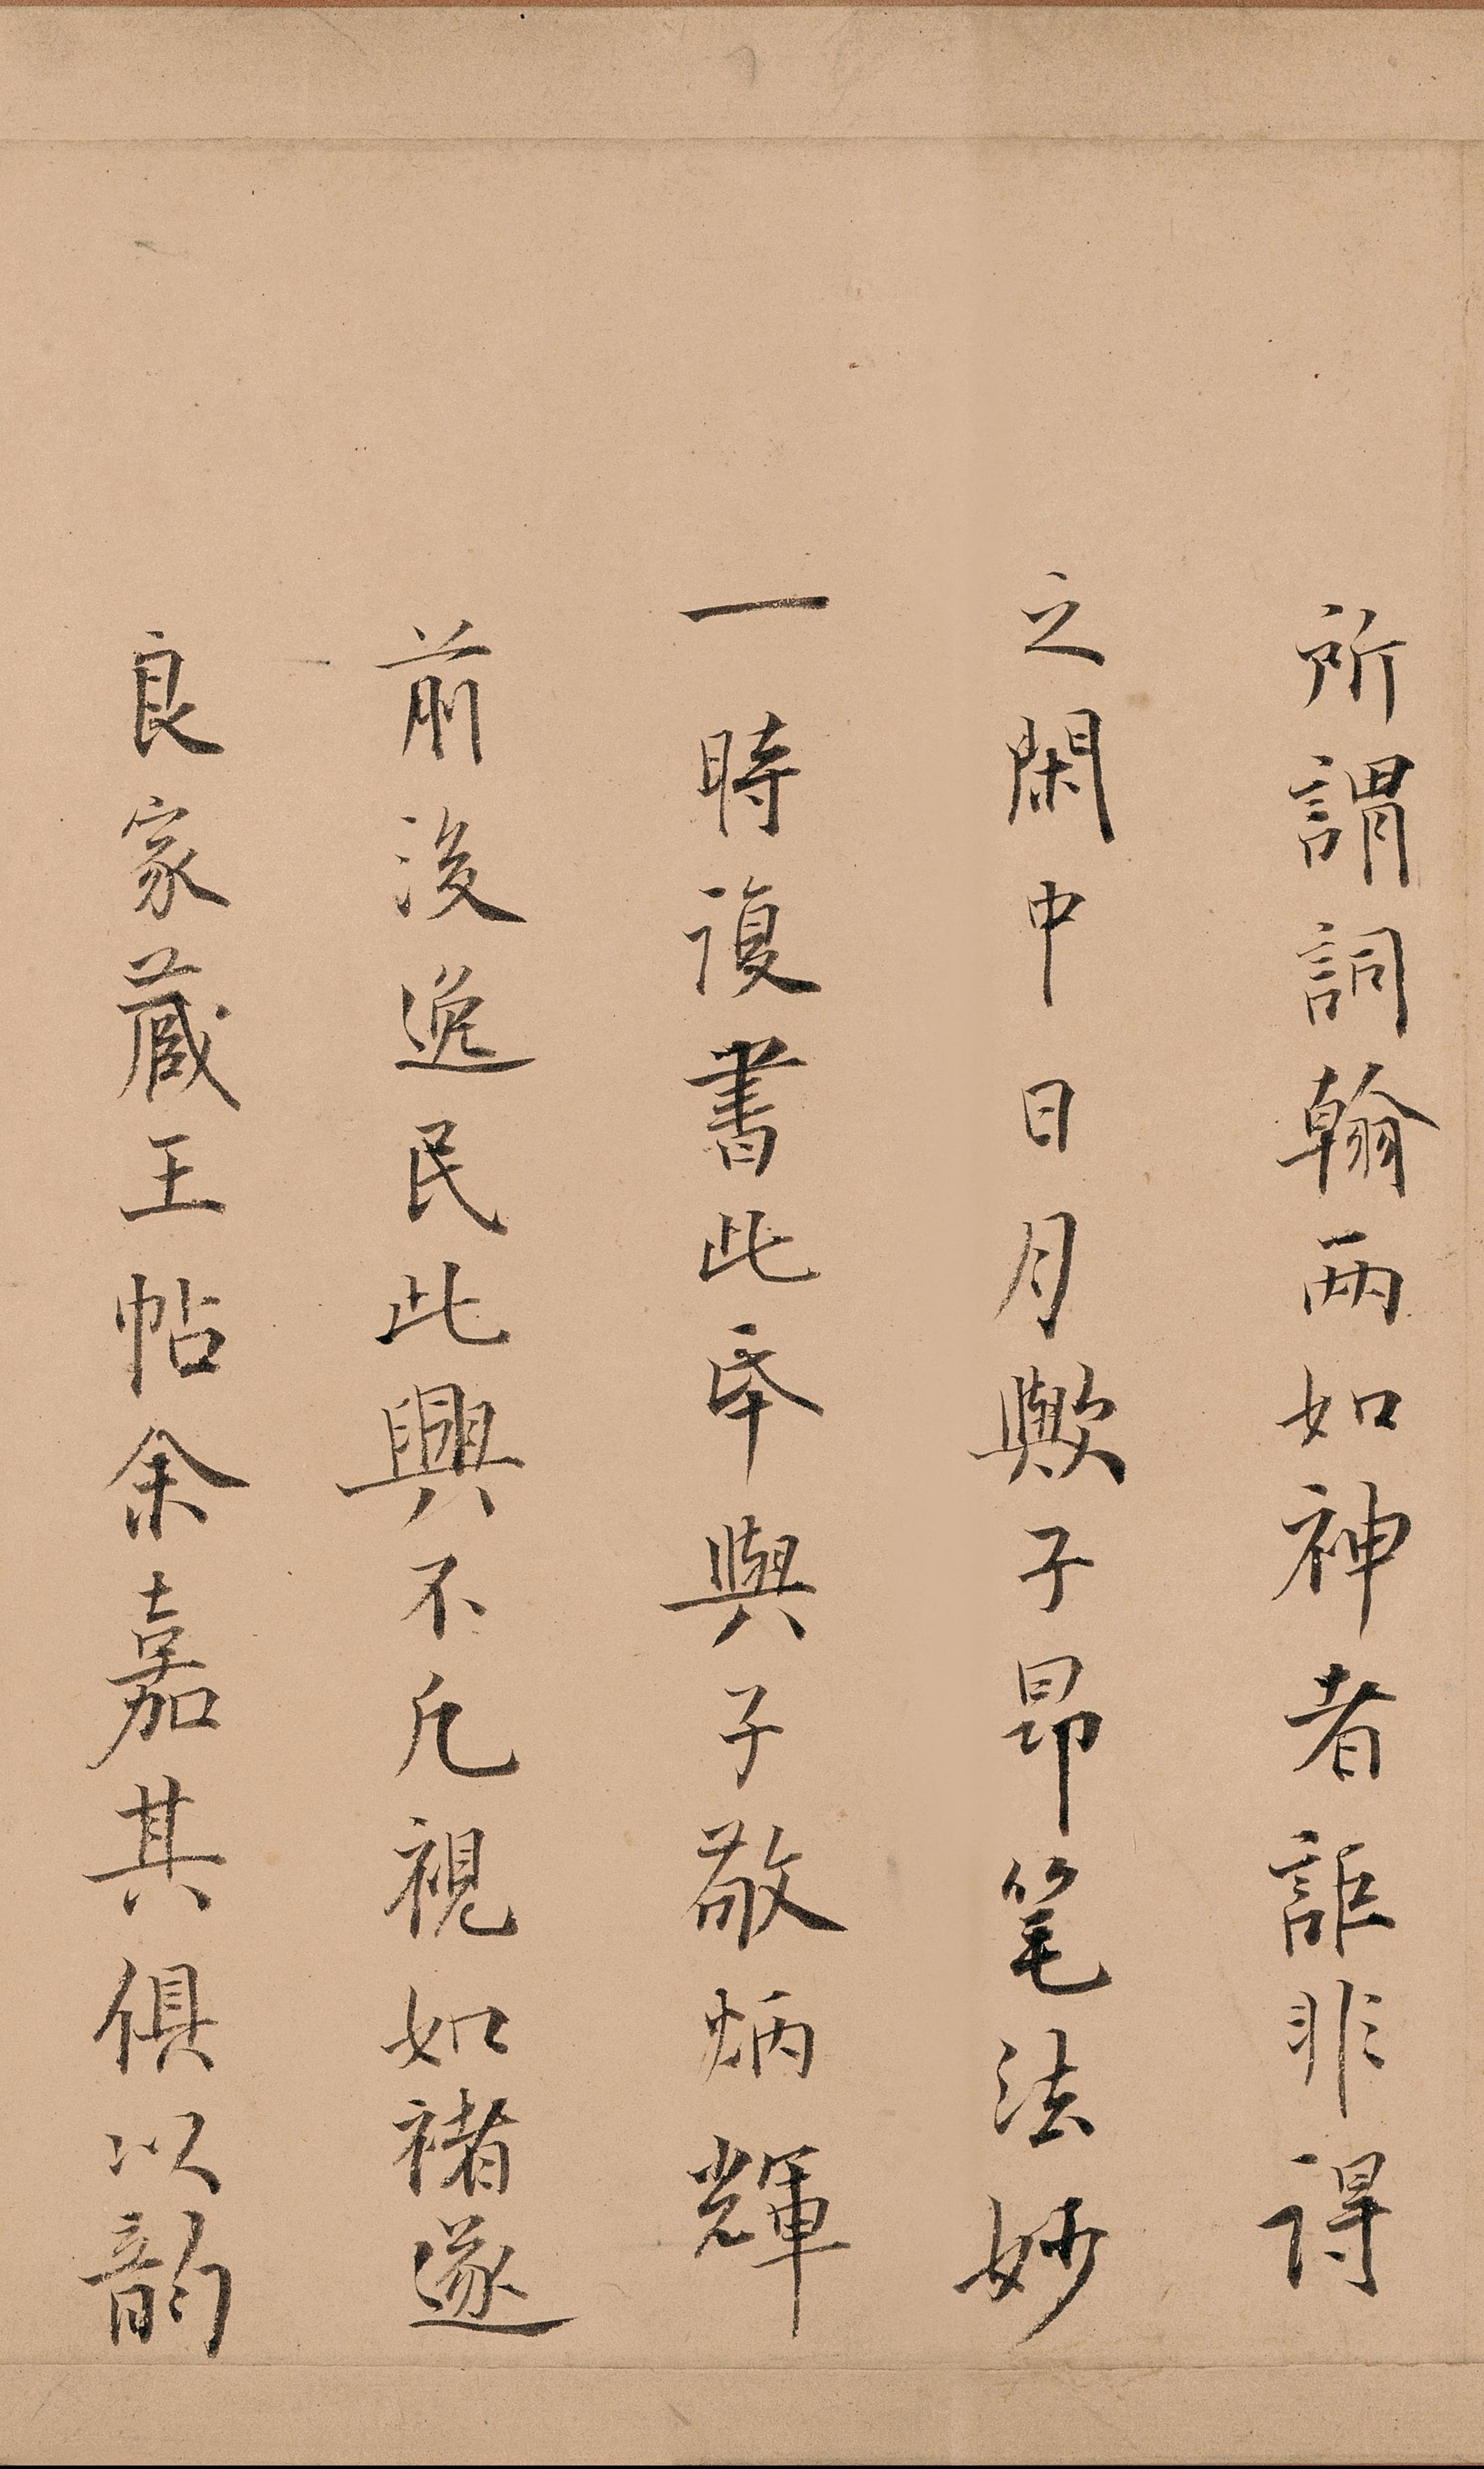 所謂詞翰兩如神者詎非得
之閑中日月歟子昂笔法妙
一時復書此卷與子敬炳輝
前後逸民此興不凡視如褚遂
良家蔵王帖余嘉其俱以韵